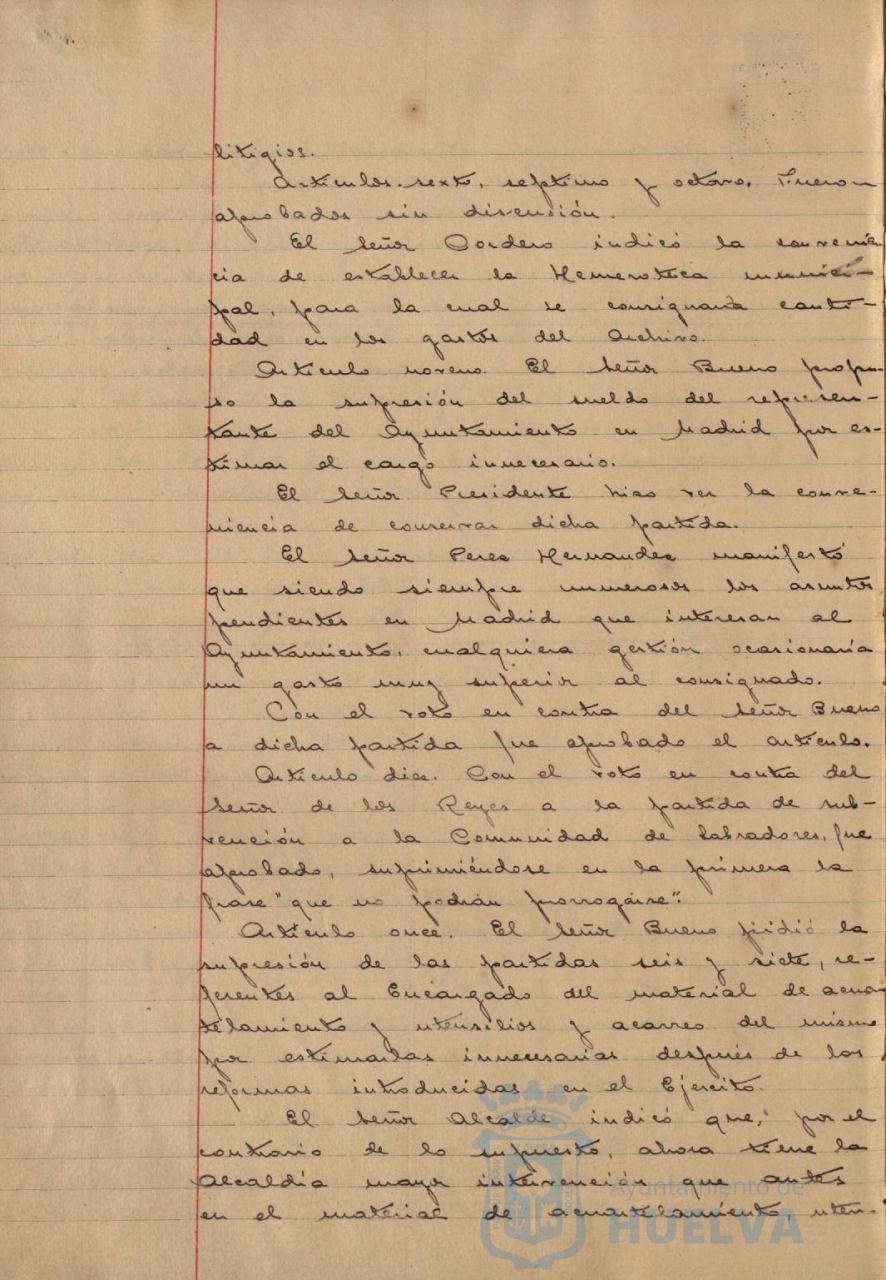 litigios.
Artículos sexto, septimo y octavo. Fueron
aprobados sin discusión.
El Señor Cordero indicó la convenien-
cia de establecer la Hemeroteca munici-
pal, para la cual se consignaria canti-
dad en los gastos del Archivo.
Artículo noveno. El Señor Bueno propu-
so la supresión del sueldo del represen-
tante del Ayuntamiento en Madrid por es-
timar el cargo innecesario.
El Señor Presidente hizo ver la conve-
niencia de conservar dicha partida.
El Señor Perez Hernandez manifestó
que siendo siempre numerosos los asuntos
pendientes en Madrid que interesan al
Ayuntamiento, cualquiera gestión ocasionaría
un gasto muy superior al consignado.
Con el voto en contra del Señor Bueno
a dicha partida fue aprobado el artículo.
Artículo diez. Con el voto en contra del
Señor de los Reyes a la partida de sub-
vención a la Comunidad de Labradores, fue
aprobado, suprimiéndose en la primera la
frase "que no podrán prorrogarse".
Artículo once. El Señor Bueno pidió la
supresión de las partidas seis y siete, re-
ferentes al Encargado del material de acuar-
telamiento y utensilios y acarreo del mismo
por estimarlas innecesarias después de las
reformas introducidas en el Ejército.
El Señor Alcalde indicó que, por el
contrario de lo supuesto, ahora tiene la
Alcaldía mayor intervención que antes
en el material de acuartelamiento, uten-
Ayuntamiento de
HUELVA